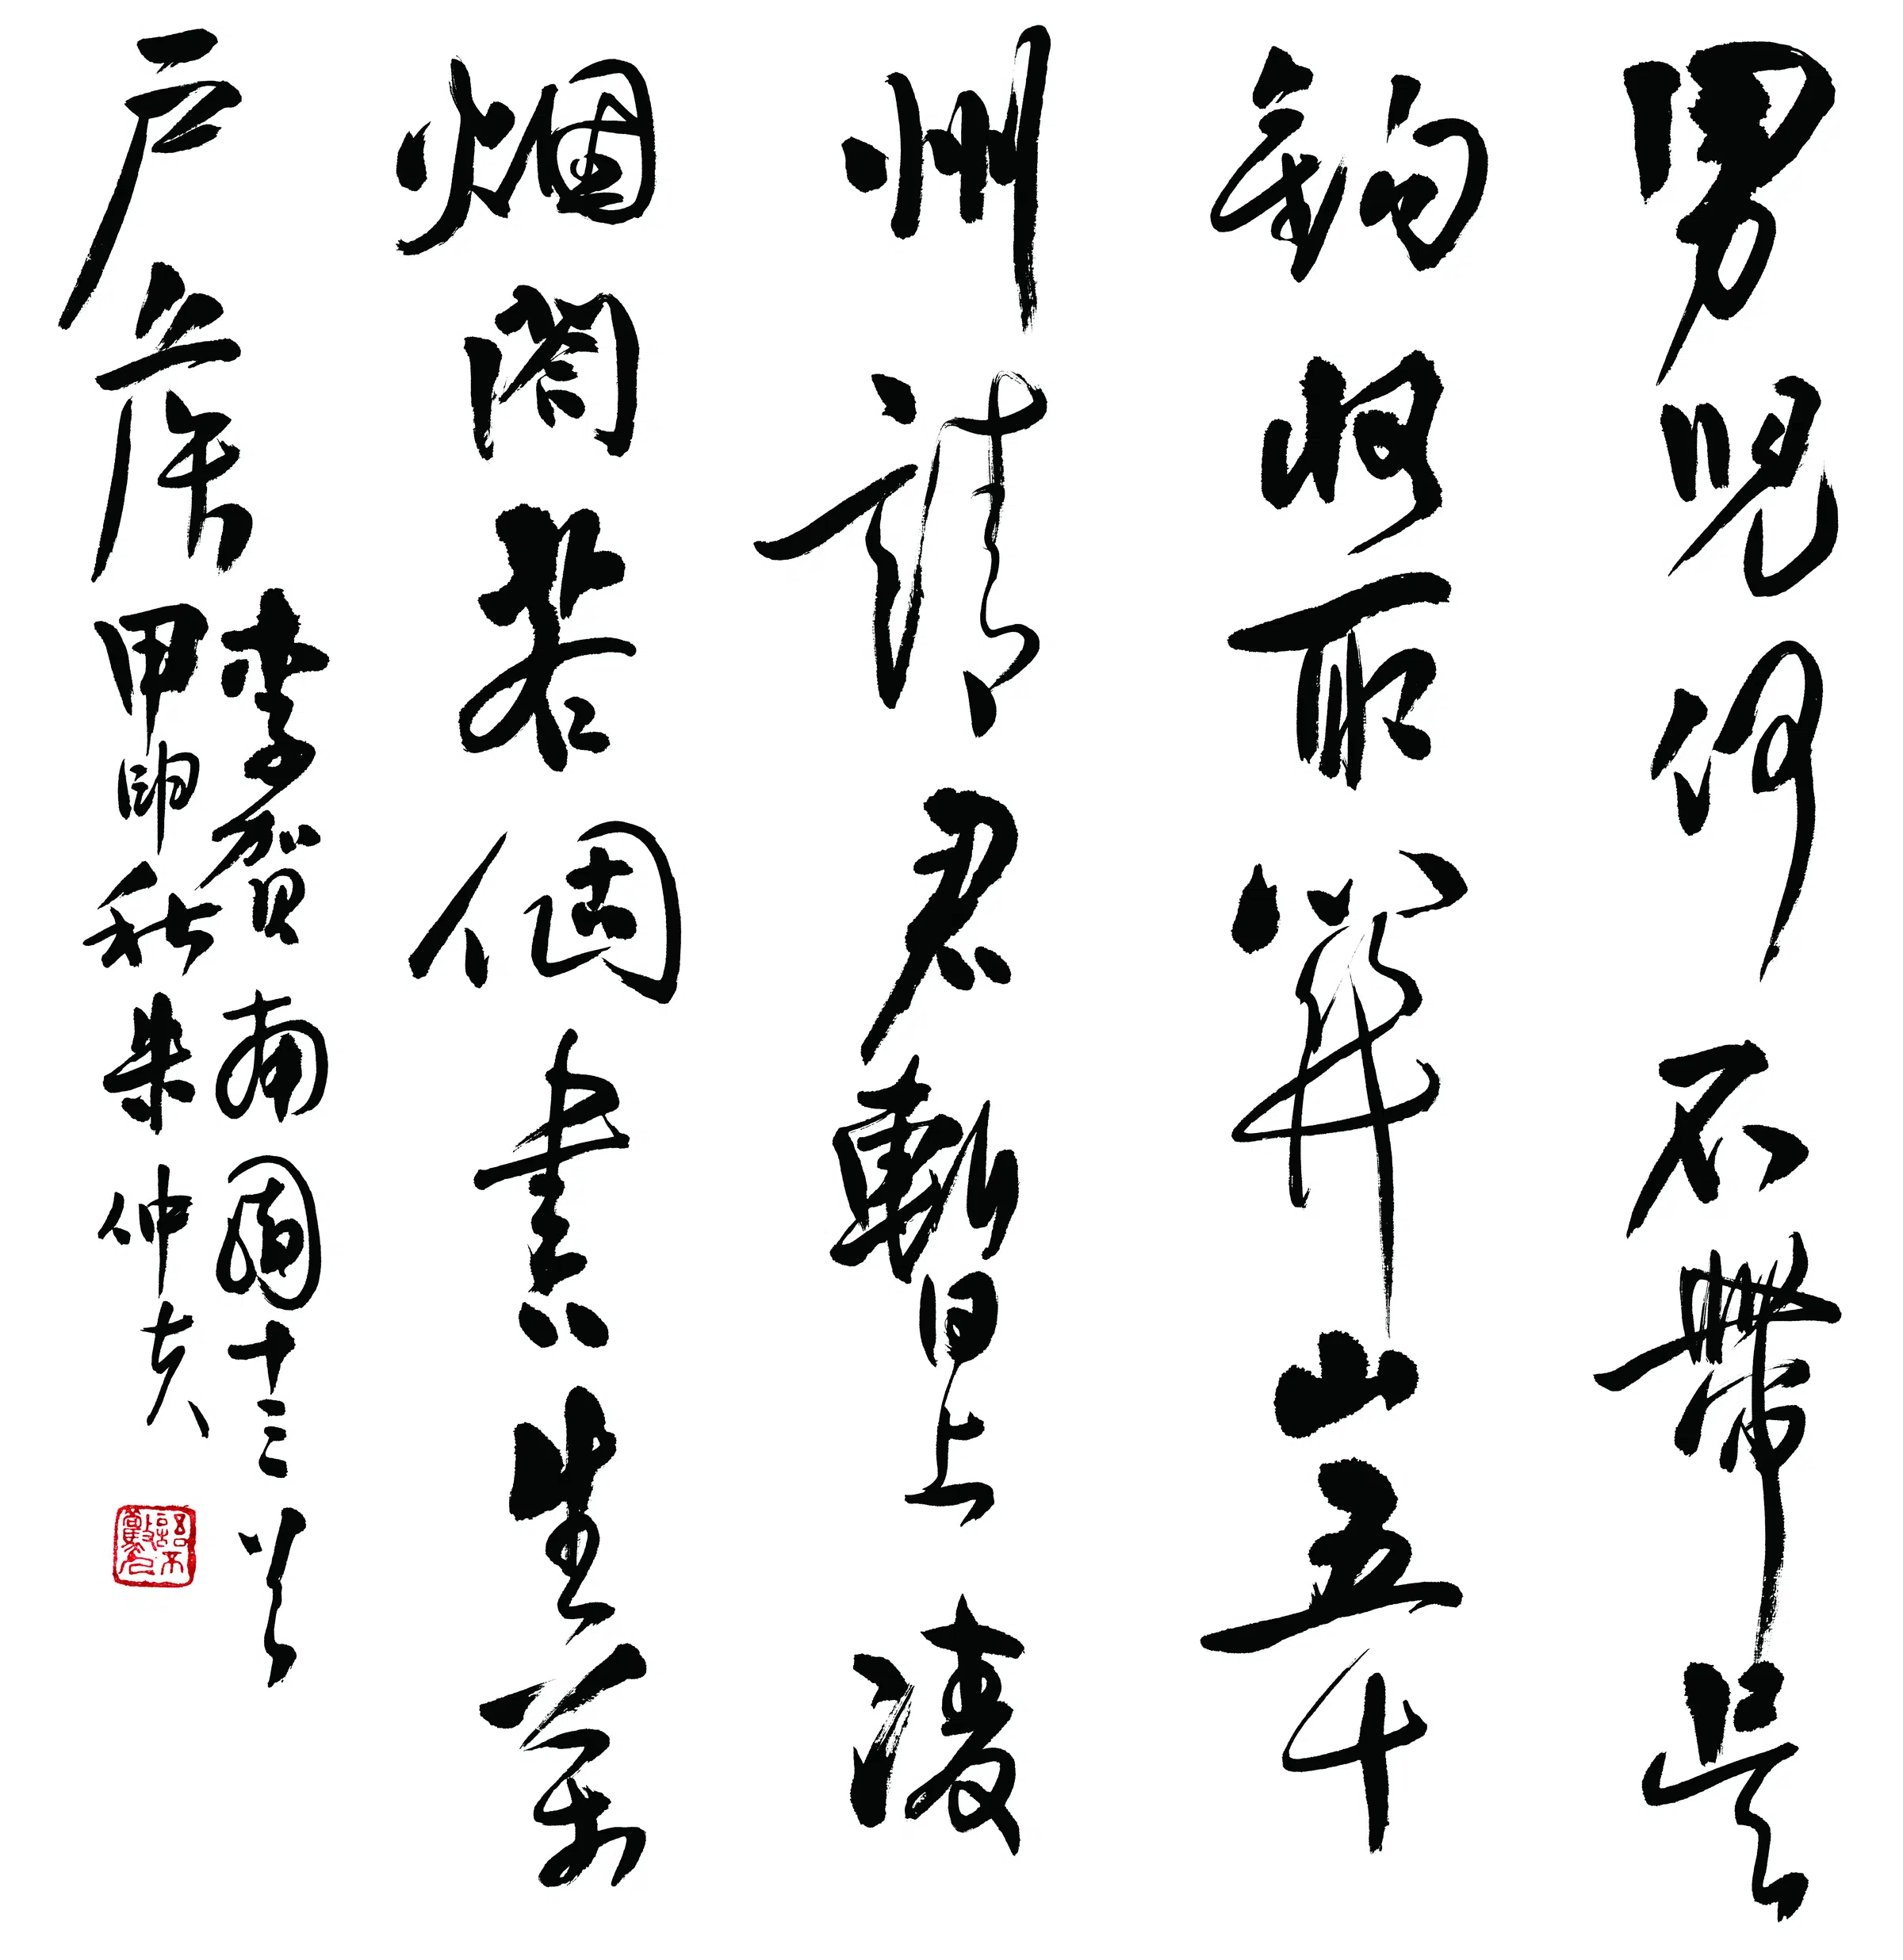 男兒何不帶吴
鈎收取關山五十
州請君暫上凌
烟閣若個書生萬
户侯
李賀南園十三首
甲申秋朱仲夫